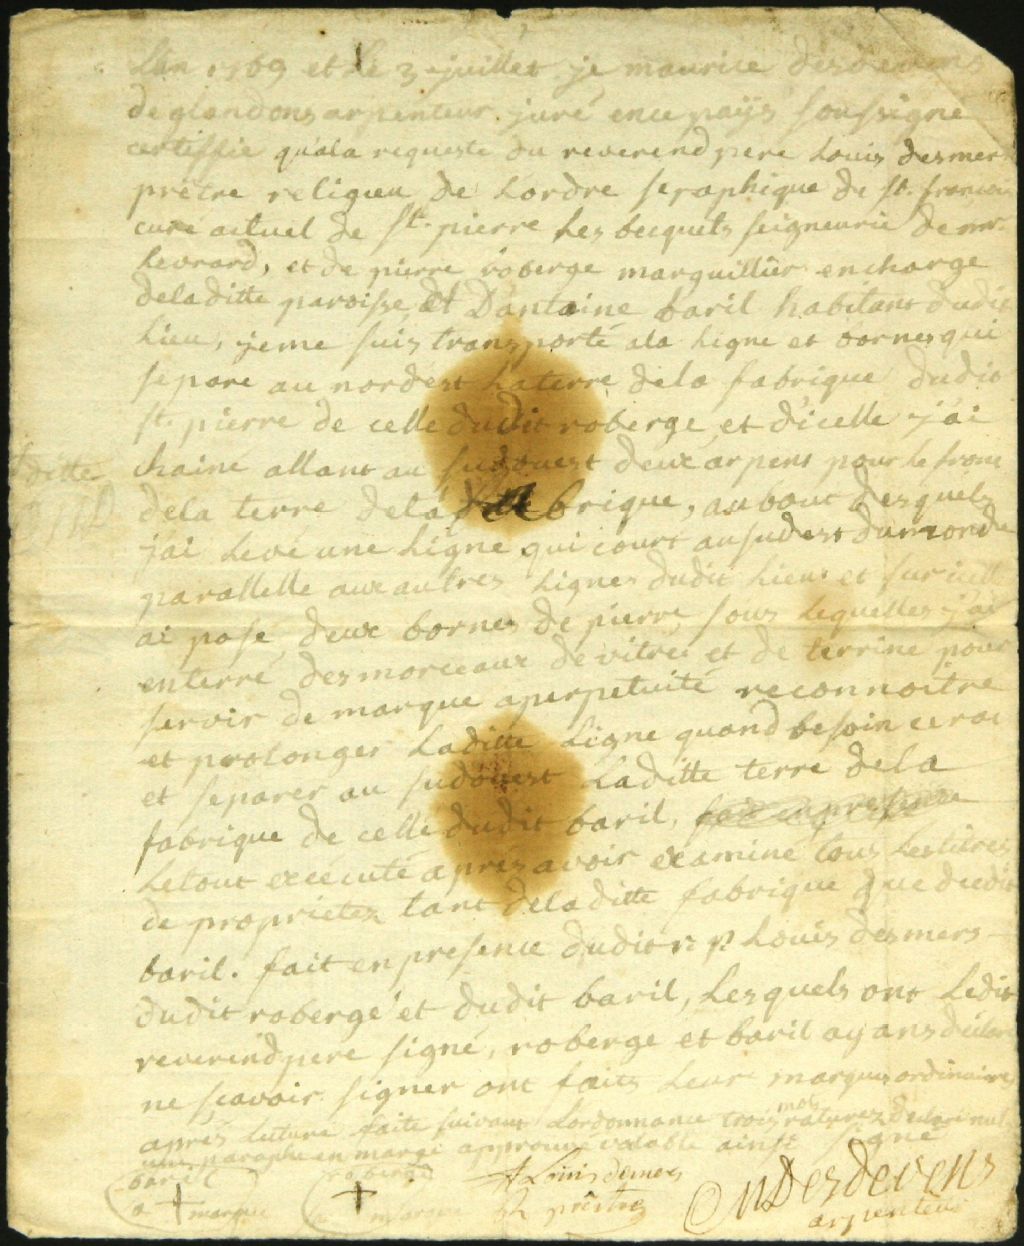 L'an 1769 et le 3 juillet je maurice desdevens
de glandons arpenteur juré ence païs soussigné
certiffie qu'ala requeste du reverend pere Louis desmers
prêtre religieu de L'ordre seraphique de St. francois
curé actuel de St. pierre Les becquets seigneurie de mr.
Levrard, et de pierre roberge marguillier encharge
deladitte paroisse, et D'antoine baril habitant dudit
Lieu, jeme suis transporté ala Ligne et bornes qui
separe au nordest Laterre dela fabrique dudit
St. pierre de celle dudit roberge, et d'icelle j'ai
chainé allant au sudouest deux arpens pour le front
ditte
dela terre dela fabrique, aubout desquels
j'ai Levé une Ligne qui court ausudest du monde
parallelle aux autres Lignes dudit Lieu et sur icelle
ai posé deux bornes de pierre sous lequelles j'ai
enterré des morceaux de vitre et de terrine pour
servir de marque aperpetuité reconnoitre
et prolonger Laditte Ligne quand besoin cera
et separer au sudouest Laditte terre dela
fabrique de celle dudit baril, fait en presence
Letout exécuté aprés avoir examiné tous Les titres
de proprietez tant deladitte fabrique que dudit
baril. fait en presence dudit r. p. Louis desmers
dudit roberge et dudit baril, Lesquels ont Ledit
reverend pere signé, roberge et baril ayans déclaré
ne scavoir signer ont faits Leur marques ordinaires
aprés Lecture faite suivant L'ordonnance trois mots raturez declaré nul
une paraphe en marge approuvé valable ainsi signé
baril
a + marque
roberge
sa + marque
f Louis demers
prêtre
MDesdevens
arpenteur